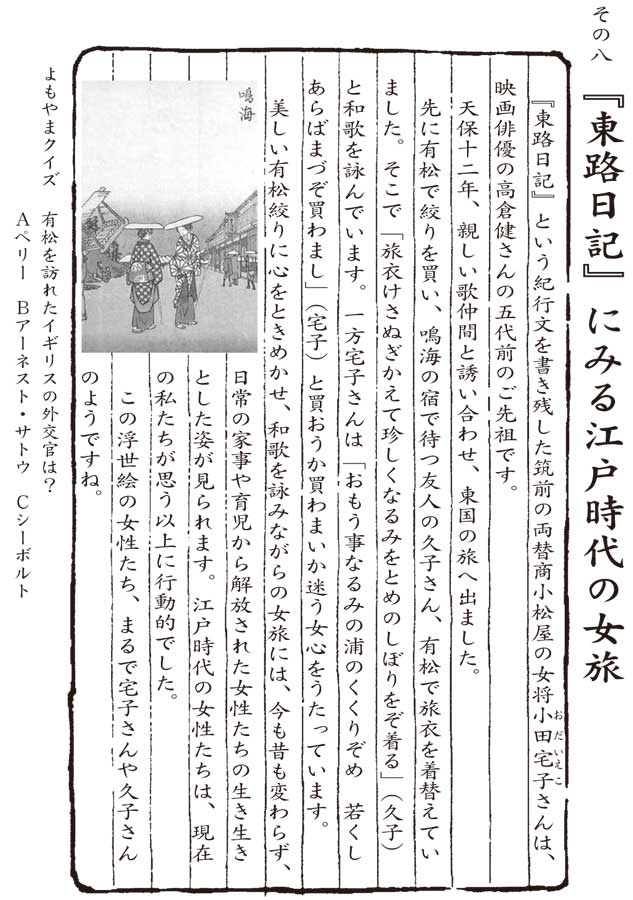 その八
『東路日記』にみる江戸時代の女旅
『東路日記』という紀行文を書き残した筑前の両替商小松屋の女将小田宅子さんは、
おだいえこ
映画俳優の高倉健さんの五代前のご先祖です。
天保十二年、親しい歌仲間と誘い合わせ、東国の旅へ出ました。
先に有松で絞りを買い、鳴海の宿で待つ友人の久子さん、有松で旅衣を着替えてい
ました。そこで「旅衣けさぬぎかえて珍しくなるみをとめのしぼりをぞ着る」（久子）
と和歌を詠んでいます。一方宅子さんは「おもう事なるみの浦のくくりぞめ　若くし
あらばまづぞ買わまし」（宅子）と買おうか買わまいか迷う女心をうたっています。
美しい有松絞りに心をときめかせ、和歌を詠みながらの女旅には、今も昔も変わらず、
日常の家事や育児から解放された女性たちの生き生き
とした姿が見られます。江戸時代の女性たちは、現在
の私たちが思う以上に行動的でした。
この浮世絵の女性たち、まるで宅子さんや久子さん
のようですね。
鳴海
よもやまクイズ　有松を訪れたイギリスの外交官は？
Aペリー　Bアーネスト・サトウ　Cシーボルト